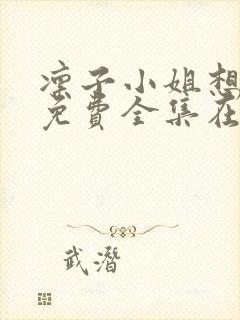 凛子小姐想
免费全集在
武潛